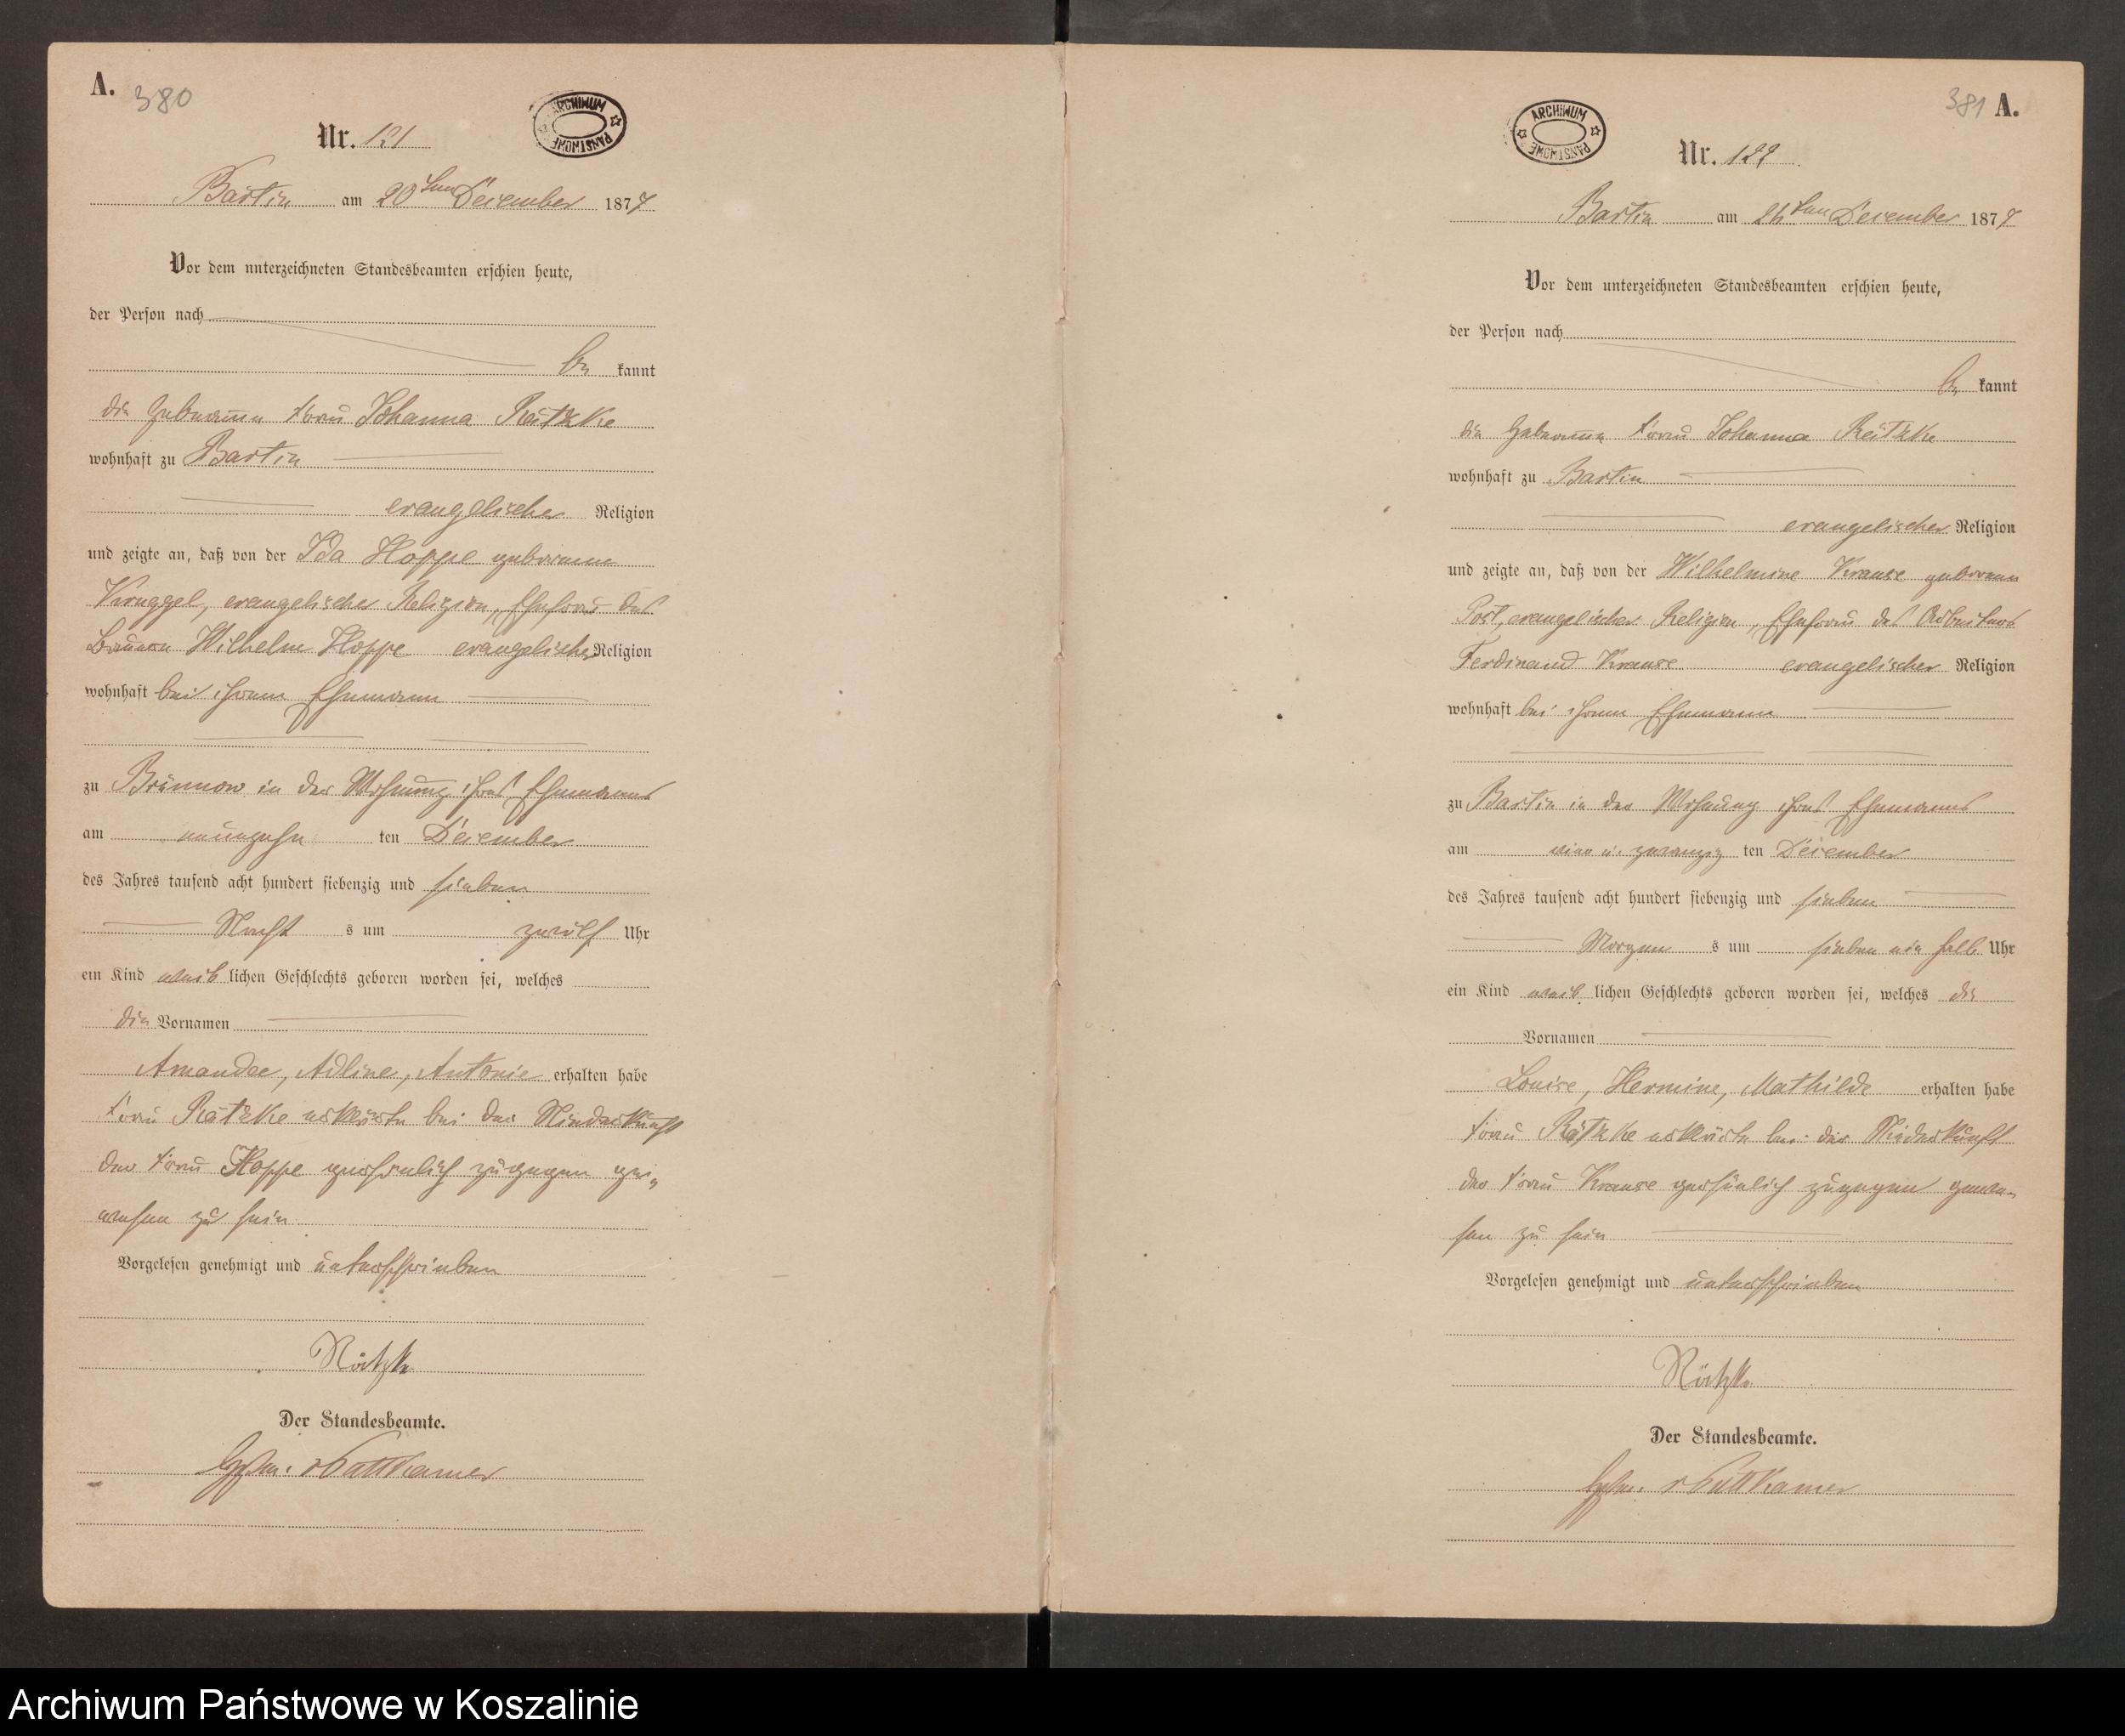 A. 380
ARCHIWUM PAŃSTWOWE
Nr. 121
Bartin am 20ten December 1877
Vor dem unterzeichneten Standesbeamten erschien heute,
der Person nach
be kannt
die Hebamme Frau Johanna Rätzke
wohnhaft zu Bartin
evangelischer Religion
und zeigte an, daß von der Ida Hoppe geborene
Kruggel, evangelischer Religion, Ehefrau des
Wilhelm Hoppe evangelischer Religion
wohnhaft bei ihrem Ehemann
zu Brünnow in der Wohnung ihres Ehemanns
am neunzehn ten December
des Jahres tausend acht hundert siebenzig und sieben
Nacht s um zwölf Uhr
ein Kind weib lichen Geschlechts geboren worden sei, welches
die Vornamen
Amandee, Adline, Antonie erhalten habe
Frau Rätzke erklärte bei der Niederkunft
der Frau Hoppe persönlich zugegen ge-
wesen zu sein
Vorgelesen genehmigt und unterschrieben
Rätzke
Der Standesbeamte.
v Puttkamer
381 A.
ARCHIWUM PAŃSTWOWE
Nr. 122
Bartin am 24ten December 1877
Vor dem unterzeichneten Standesbeamten erschien heute,
der Person nach
be kannt
die Hebamme Frau Johanna Rätzke
wohnhaft zu Bartin
evangelischer Religion
und zeigte an, daß von der Wilhelmine Krause geborene
Post, evangelischer Religion, Ehefrau des Arbeiters
Ferdinand Krause evangelischer Religion
wohnhaft bei ihrem Ehemann
zu Bartin in der Wohnung ihres Ehemanns
am vier u. zwanzig ten December
des Jahres tausend acht hundert siebenzig und sieben
Morgen s um sieben ein halb Uhr
ein Kind weib lichen Geschlechts geboren worden sei, welches die
Vornamen
Louise, Hermine, Mathilde erhalten habe
Frau Rätzke erklärte bei der Niederkunft
der Frau Krause persönlich zugegen gewe-
sen zu sein
Vorgelesen genehmigt und unterschrieben
Rätzke
Der Standesbeamte.
v Puttkamer
Archiwum Państwowe w Koszalinie